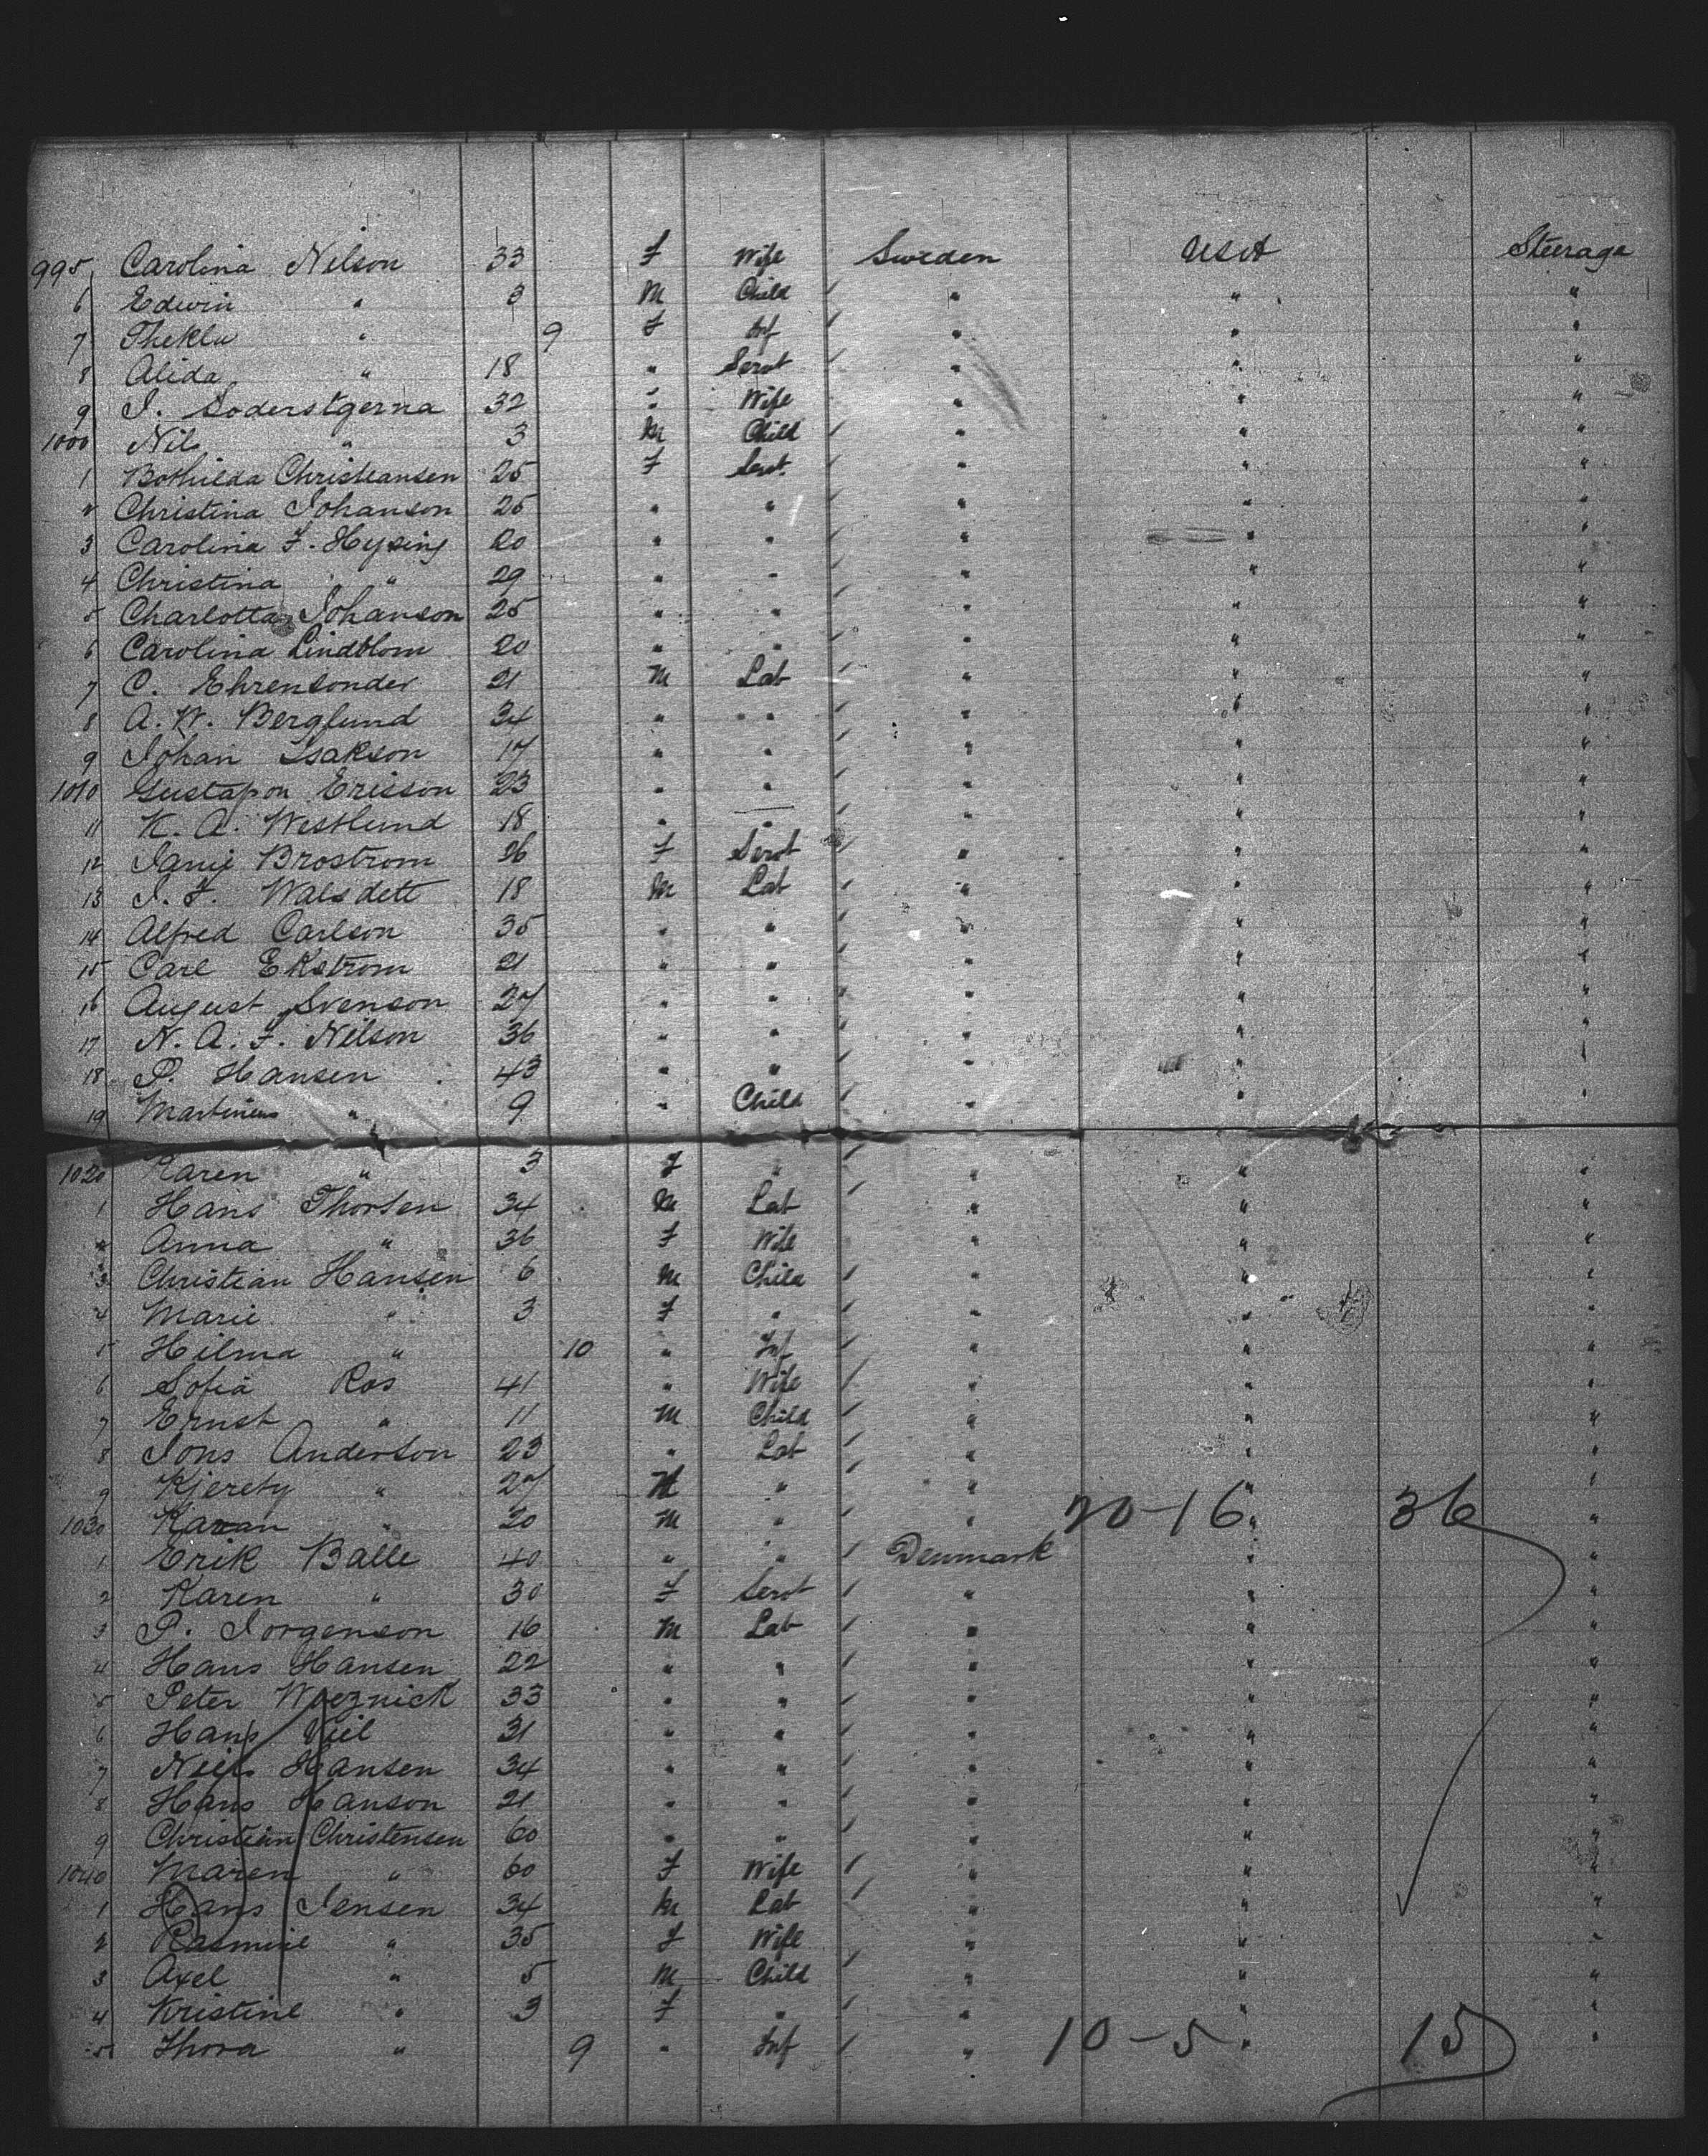 995 Carolina Nilson 33 F Wife Sweden USA Steerage
6 Edwin " 3 M Child " " "
7 Thekla " 9 F Inf " " "
8 Alida " 18 " Servt " " "
9 I. Soderstgerna 32 " Wife " " "
1000 Nils " 3 M Child " " "
1 Bothilda Christiansen 25 F Servt " " "
2 Christina Johanson 25 " " " " "
3 Carolina F. Hysing 20 " " " " "
4 Christina " 29 " " " " "
5 Charlotta Johanson 25 " " " " "
6 Carolina Lindblom 20 " " " " "
7 C. Ehrensonder 21 M Lab " " "
8 A. W. Berglund 34 " " " " "
9 Johan Isakson 17 " " " " "
1010 Erisson 23 " " " " "
11 K. A. Westlund 18 " " " " "
12 Brostrom 26 F Servt " " "
13 I. F. Walsdett 18 M Lab " " "
14 Alfred Carlson 35 " " " " "
15 Carl Ekstrom 21 " " " " "
16 August Svenson 27 " " " " "
17 N. A. F. Nilson 36 " " " " "
18 P. Hansen 43 " " " " "
19 Martinus " 9 " Child " " "
1020 Karen " 3 F " " " "
1 Hans Thorsen 34 M Lab " " "
2 Anna " 36 F Wife " " "
3 Christian Hansen 6 M Child " " "
4 Marie " 3 F " " " "
5 Hilma " 10 " Inf " " "
6 Sofia Ros 41 " Wife " " "
7 Ernst " 11 M Child " " "
8 Jons Anderson 23 " Lab " " "
9 Kjersty " 27 " " " "
1030 " 20 M " " 20-16 " 36 "
1 Erik Balle 40 " " Denmark " "
2 Karen " 30 F Servt " " "
3 P. Jorgenson 16 M Lab " " "
4 Hans Hansen 22 " " " " "
5 Peter 33 " " " " "
6 Hans 31 " " " " "
7 Niels Hansen 34 " " " " "
8 Hans Hanson 21 " " " " "
9 Christian Christensen 60 " " " " "
1040 Maren " 60 F Wife " " "
1 Hans Jensen 34 M Lab " " "
2 Rasmine " 35 F Wife " " "
3 Axel " 5 M Child " " "
4 Kristine " 3 F " " " "
5 Thora " 9 " Inf " 10-5 " 15 "